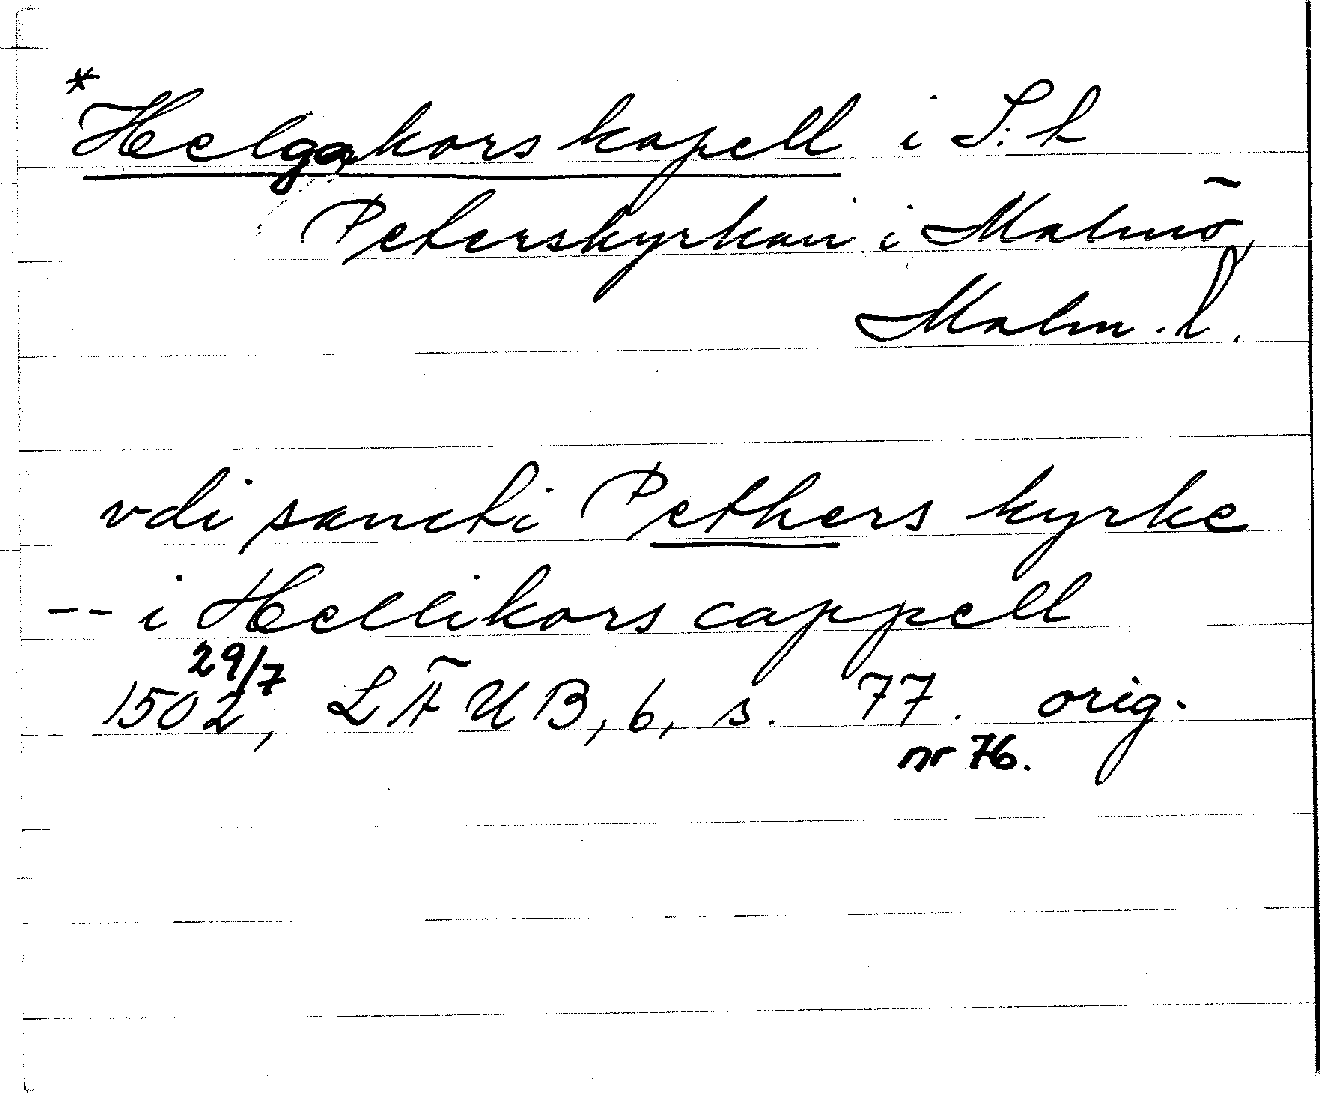 *Helgakors kapell i S:t
Peterskyrkan i Malmö,
Malm. l.
vdi sancti Pethers kyrke
-- i Hellikors cappell
29/7
1502, LÄUB, 6, s. 77. orig.
nr 76.